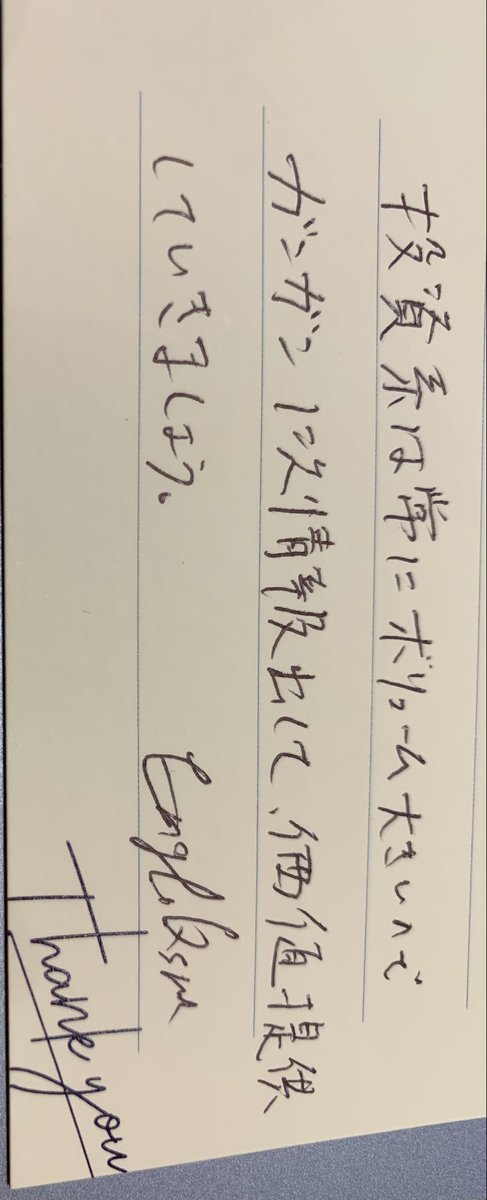 投資系は常にボリューム大きいので
ガンガン1次情報出して、価値提供
していきましょう。
Thank you